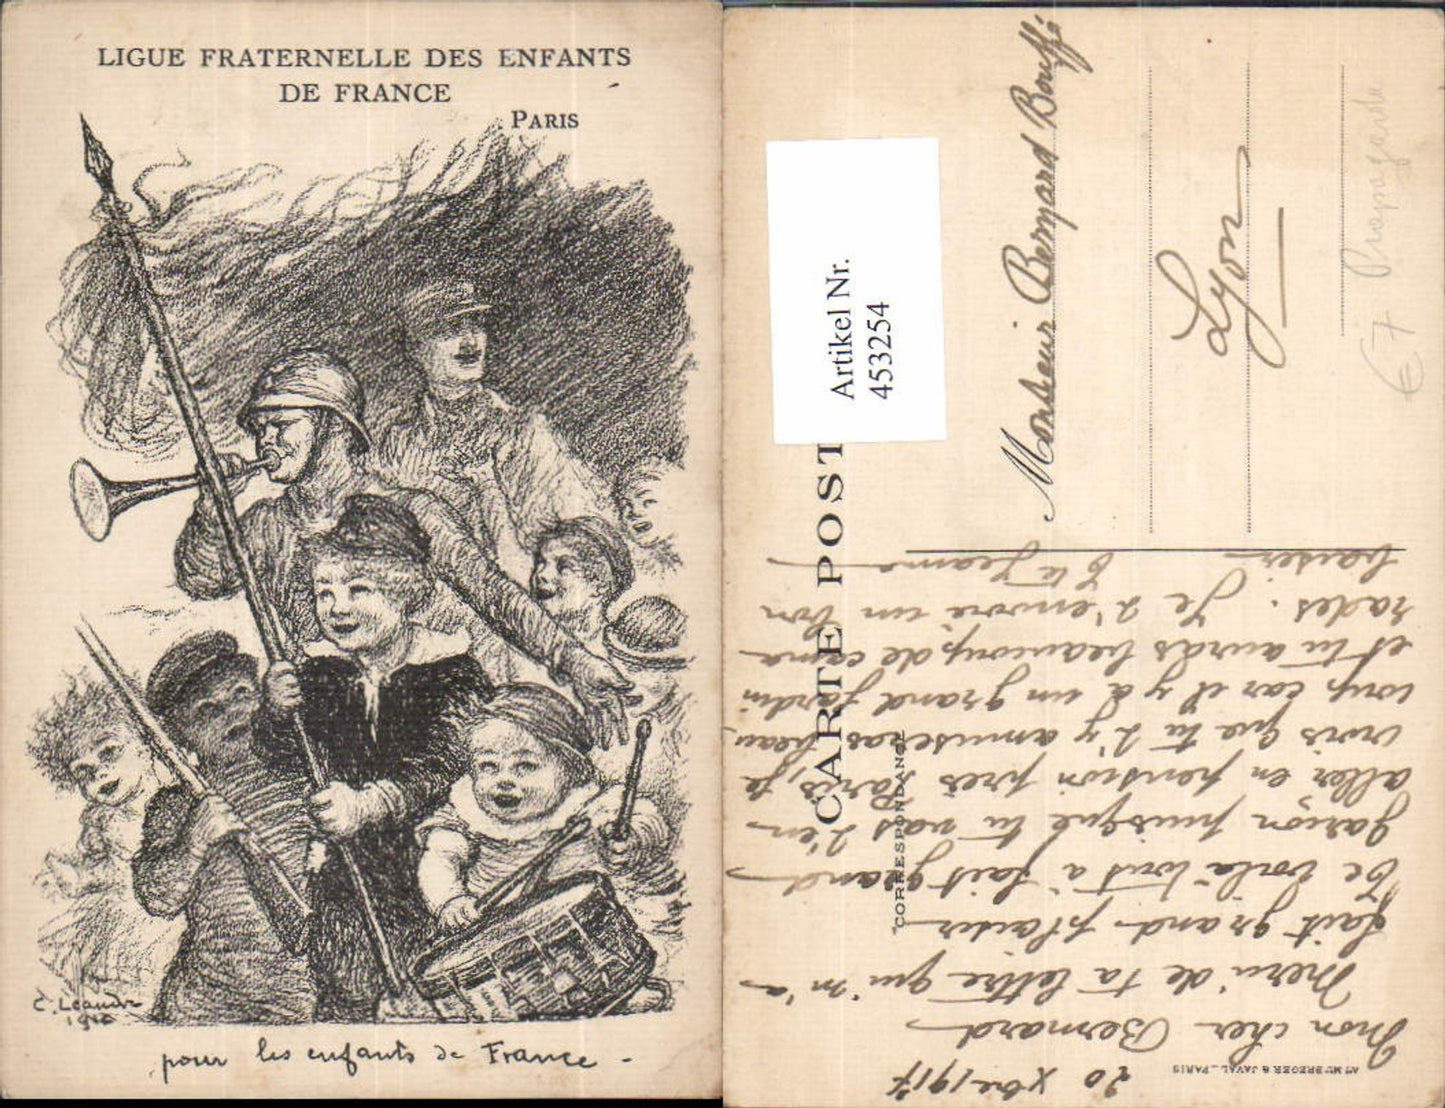 LIGUE FRATERNELLE DES ENFANTS
DE FRANCE
PARIS
C. Léandre
pour les enfants de France -
Artikel Nr.
453254
CARTE POST
"CORRESPONDANCE"
Monsieur Bernard Bouffi
Lyon
€ 7 Propaganda
20 Xbre 1917
Mon cher Bernard
Merci de ta lettre qui m'a
fait grand plaisir
Te voilà tout à fait grand
garçon puisque tu vas t'en
aller en pension près Paris, je
crois que tu t'y amuseras beau
coup car il y a un grand jardin
et tu auras beaucoup de cama
rades. Je t'envoie un bon
baiser
Ta Jeanne
ATRS BREGER & JAVAL _ PARIS